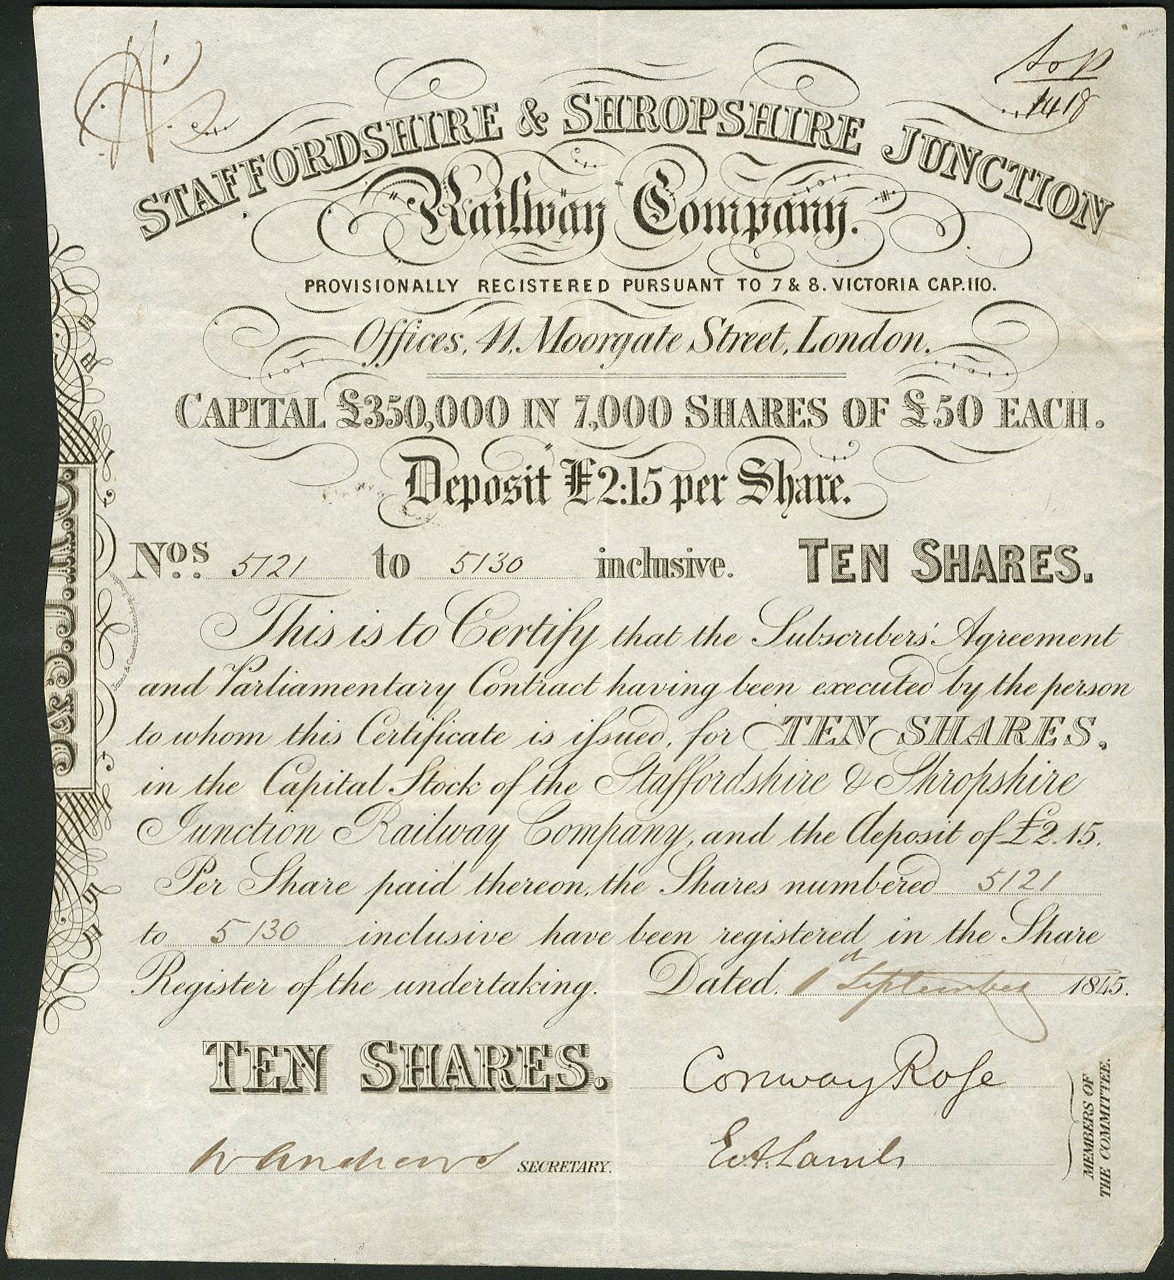 STAFFORDSHIRE & SHROPSHIRE JUNCTION
Railway Company.
PROVISIONALLY REGISTERED PURSUANT TO 7 & 8. VICTORIA CAP. 110.
Offices, 44, Moorgate Street, London.
CAPITAL £350,000 IN 7,000 SHARES OF £50 EACH.
Deposit £2:15 per Share.
Nos. 5121 to 5130 inclusive. TEN SHARES.
This is to Certify that the Subscribers' Agreement
and Parliamentary Contract having been executed by the person
to whom this Certificate is issued, for TEN SHARES,
in the Capital Stock of the Staffordshire & Shropshire
Junction Railway Company, and the deposit of £2.15.
Per Share paid thereon, the Shares numbered 5121
to 5130 inclusive have been registered in the Share
Register of the undertaking. Dated, 1st September 1845.
TEN SHARES. Conway Rose
W Andrews SECRETARY. E. A. Lamb
MEMBERS OF
THE COMMITTEE.